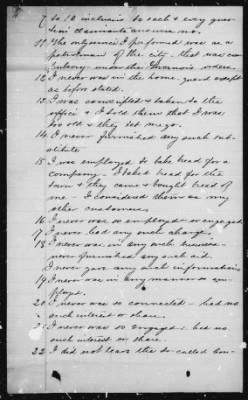 7 to 10 inclusive to each & every question claimants answers no.
11. The only service I performed was as a
patrolman of the city, that was com
pulsory under the Provosts orders.
12. I never was in the home guard except
as before stated.
13. I was conscripted & taken to the
office & I told them that I was
too old & they let me go.
14. I never furnished any such sub-
stitute
15. I was employed to bake bread for a
company - I baked bread for the
town & they came & bought bread of
me - I considered them as my
other customers.
16. I never was so employed or engaged
17. I never had any such charge.
18. I never was in any such business
never furnished any such aid.
I never gave any such information
19. I never was in any manner so em-
ployed.
20. I never was so connected - had no
such interest or share.
21. I never was so engaged. had no
such interest in share.
22. I did not leave the so-called Con-